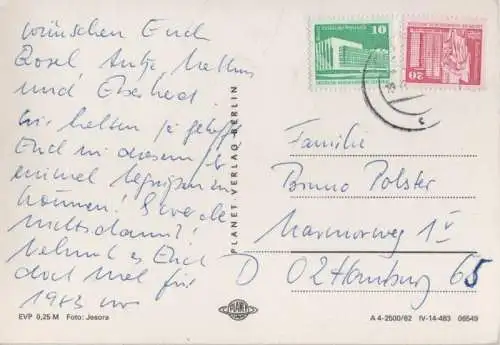 wünschen Euch
Rosel Antje Mathias
und Eberhard!
Wir hatten ja gehofft
Euch in diesem J.
einmal begrüßen zu
können! Es wurde
nichts daraus!
Nehmt es Euch
doch mal für
1983 vor
PLANET-VERLAG BERLIN
10
20
Familie
Bruno Polster
Marmorweg 1
D 02 Hamburg 65
EVP 0,25 M Foto: Jesora
PLANET
A 4-2500/82 IV-14-483 06549